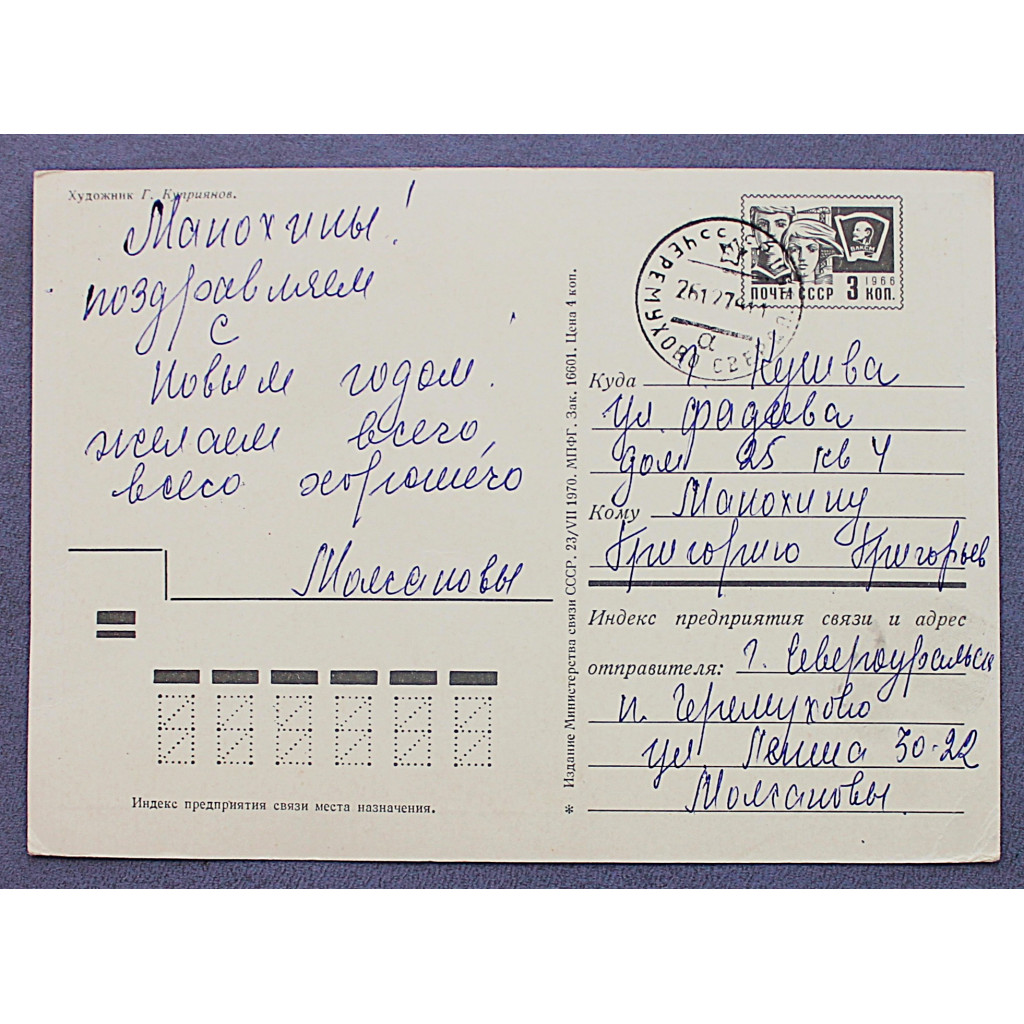 Художник Г. Куприянов.
Манохины!
поздравляем
с
Новым годом.
желаем всего,
всего хорошего
Молчановы
Индекс предприятия связи места назначения.
* Издание Министерства связи СССР. 23/VII 1970. МПФГ. Зак. 16601. Цена 4 коп.
ВЛКСМ
1966
ПОЧТА СССР 3 КОП.
СССР
ЧЕРЕМУХОВО
261274
а
Куда г. Кушва
ул. Фадеева
дом 25 кв 4
Кому Манохину
Григорию Григорьев
Индекс предприятия связи и адрес
отправителя: г. Североуральск
п. Черемухово
ул. Ленина 30-22
Молчановы